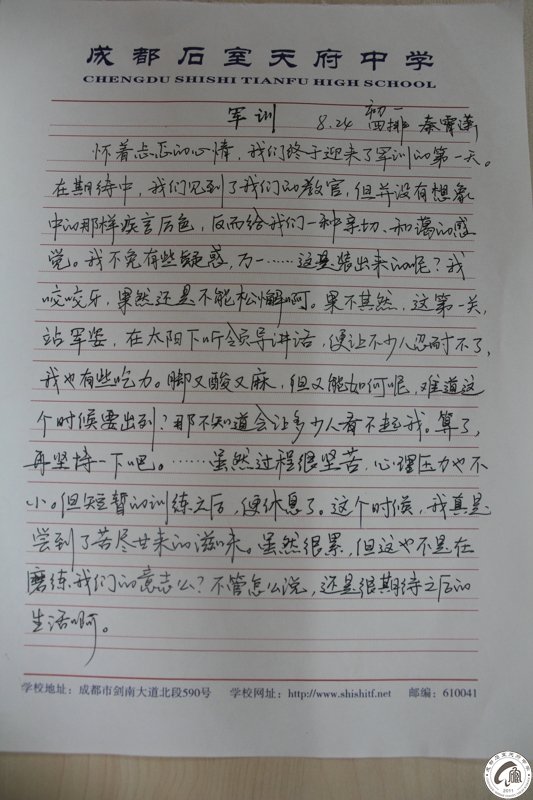 成都石室天府中学
CHENGDU SHISHI TIANFU HIGH SCHOOL
军训
8.24 初一四排 秦霄潇
怀着忐忑的心情，我们终于迎来了军训的第一天。
在期待中，我们见到了我们的教官，但并没有想象
中的那样疾言厉色，反而给我们一种亲切、和蔼的感
觉。我不免有些疑惑，万一……这是装出来的呢？我
咬咬牙，果然还是不能松懈啊。果不其然，这第一关，
站军姿，在太阳下听领导讲话，便让不少人忍耐不了，
我也有些吃力。脚又酸又麻，但又能如何呢，难道这
个时候要出列？那不知道会让多少人看不起我。算了，
再坚持一下吧。……虽然过程很坚苦，心理压力也不
小。但短暂的训练之后，便休息了。这个时候，我真是
尝到了苦尽甘来的滋味。虽然很累，但这也不是在
磨练我们的意志么？不管怎么说，还是很期待之后的
生活啊。
学校地址：成都市剑南大道北段590号 学校网址：http://www.shishitf.net 邮编：610041
2011